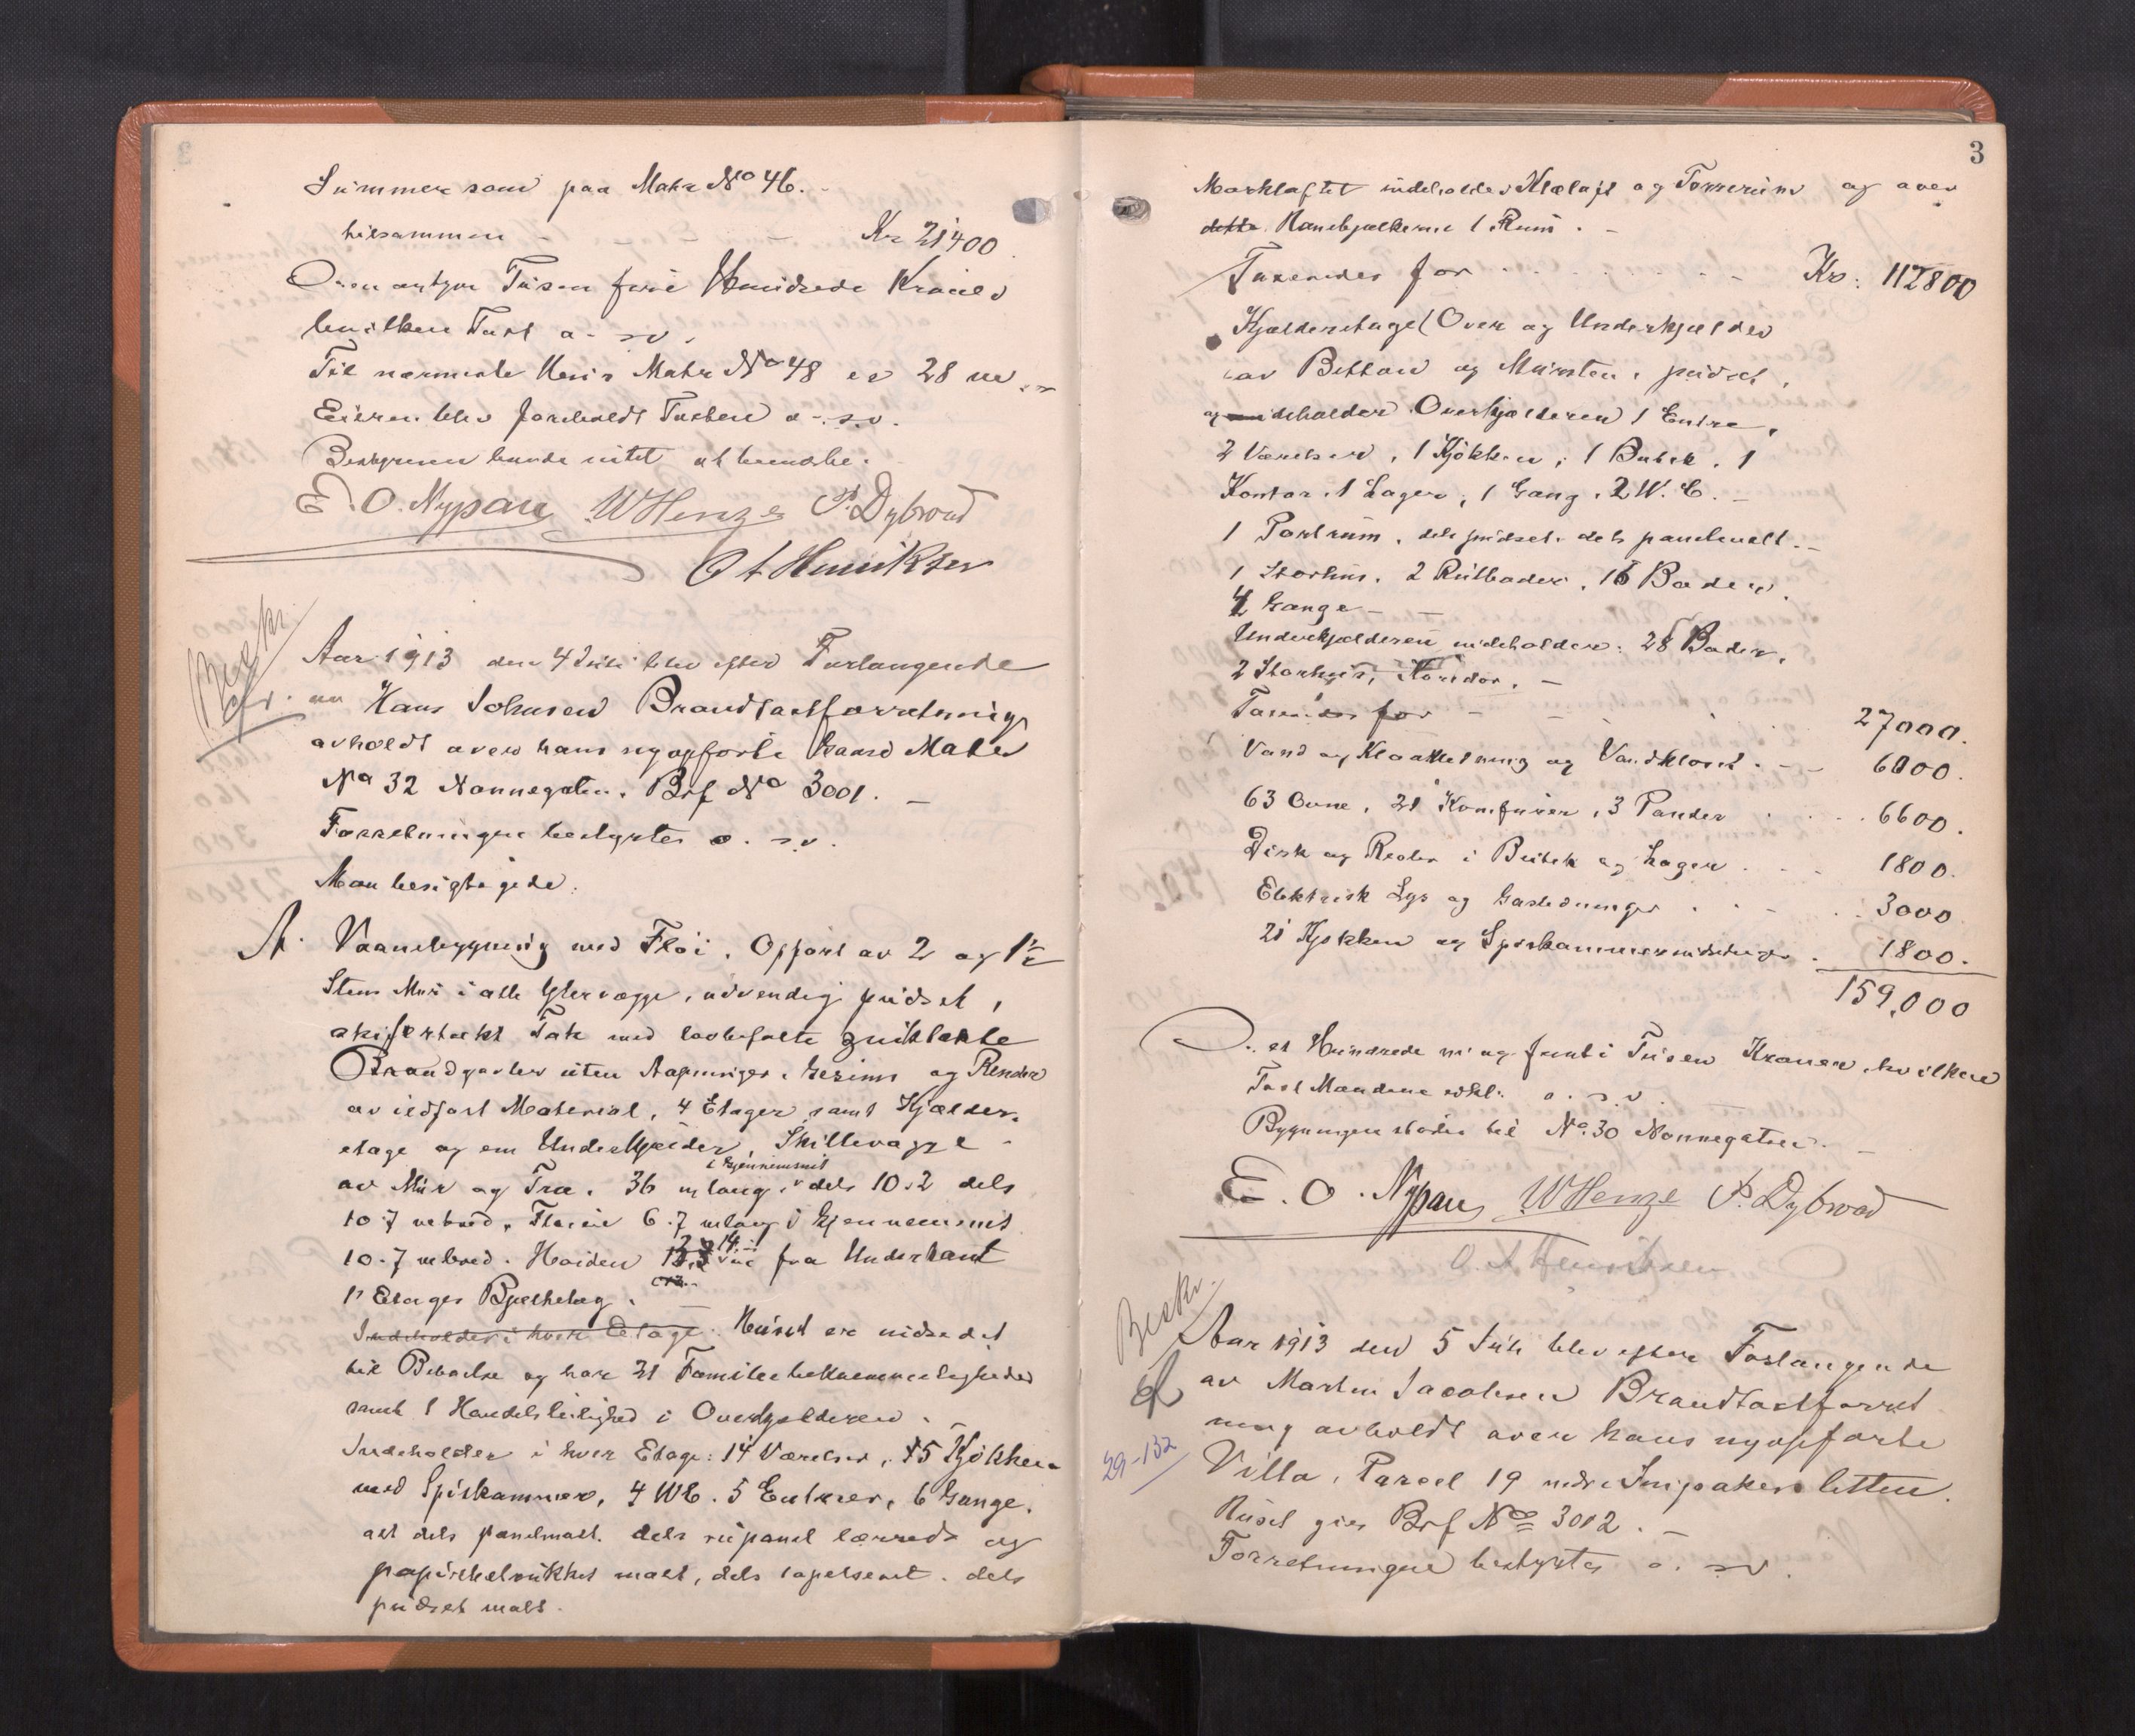 Summer som paa Matr No 46.
tilsammen - - - - Kr 21400
en og tyve Tusen fire Hundrede Kroner
hvilken Taxt o. s. v.
Til nærmeste Hus Matr No 48 er 28 m
Eieren blev foreholdt Taxten o. s. v.
Bestyreren havde intet at bemærke.
E. O. Nypan WHenze P. Dybwad
O A Henriksen
Beskr.
Aar 1913 den 4 Juli blev efter Forlangende
av Hans Johnsen Brandtaxtforretning
avholdt over hans nyopførte Gaard Matr
No 32 Nonnegaten. Brf No 3001. –
Forretningen bestyrtes o. s. v.
Man besigtigede:
A. Vaanebygning med Fløi. Opført av 2 og 1½
Stens Mur i alle Ydervægge, udvendig pudset,
skifertækt Tak med zinktækte
Brandgavler uten Aapninger. Gesims og Render
av ildfast Material, 4 Etager samt Kjælder-
etage og en Underkjælder, Skillevægge
i Gjennemsnit
av Mur og Træ. 36 m lang, dels 10.2 dels
10.7 m bred. Fløien 6.7 m lang i Gjennemsnit
10.7 m bred. Høiden fra Underkant
1ste Etages Bjælkelag.
Indeholder i hver Etage. Huset er indredet
til Beboelse og har 21 Familiebekvemmeligheder
samt 1 Handelsleilighed i Overkjælderen.
Indeholder i hver Etage: 14 Værelser, 5 Kjøkken
med Spiskammer, 4 WC. 5 Entreer, 6 Gange.
alt dels panelmalt. dels rupanel lærreds og
papirbetrukket malt, dels tapetseret. dels
pudset malt.
3
Mørkloftet indeholder Klæloft og Tørrerum og over
dette Hanebjælkerne 1 Rum. –
Taxeredes for - - - - Kr. 112800
Kjælderetage (Over og Underkjælder
av Betton og Mursten, pudset,
og indeholder Overkjælderen 1 Entre,
2 Værelser, 1 Kjøkken, 1 Butik, 1
Kontor, 1 Lager, 1 Gang, 2 W. C. –
1 Portrum, dels pudset. dels panelmalt. –
1 Storhus. 2 Rulboder. 16 Boder.
4 Gange – –
Underkjælderen indeholder: 28 Boder,
2 Storhus, Koridor. –
Taxeredes for - - - 27000.
Vand og Kloakledning og Vandkloset. - - 6000.
63 Ovne, 21 Komfurer, 3 Pander . . . 6600.
Disk og Reoler i Butik og Lager . . - 1800.
Elektrisk Lys og Gasledninger . . - . 3000
21 Kjøkken og Spiskammerindredninger . 1800.
159,000
et Hundrede ni og femti Tusen Kroner, hvilken
Taxt Mændene o. s. v.
Bygningen støder til No. 30 Nonnegaten. –
E. O. Nypan WHenze P. Dybwad
O. A Henriksen
Beskr.
Aar 1913 den 5 Juli blev efter Forlangende
av Martin Jacobsen Brandtaxtforret
ning avholdt over hans nyopførte
29-132
Villa, Parcel 19 nedre
Huset gies Brf No 3002. –
Forretningen bestyrtes o. s. v.